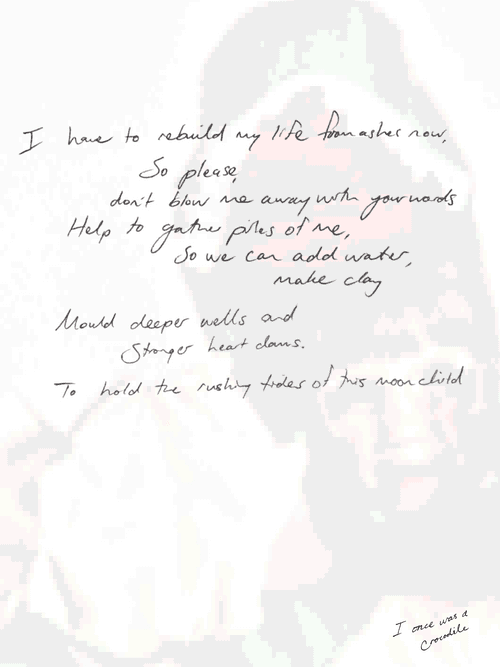 I have to rebuild my life from ashes now,
So please,
don't blow me away with your words
Help to gather piles of me,
So we can add water,
make clay
Mould deeper wells and
Stronger heart dams.
To hold the rushing tides of this moonchild
I once was a
Crocodile